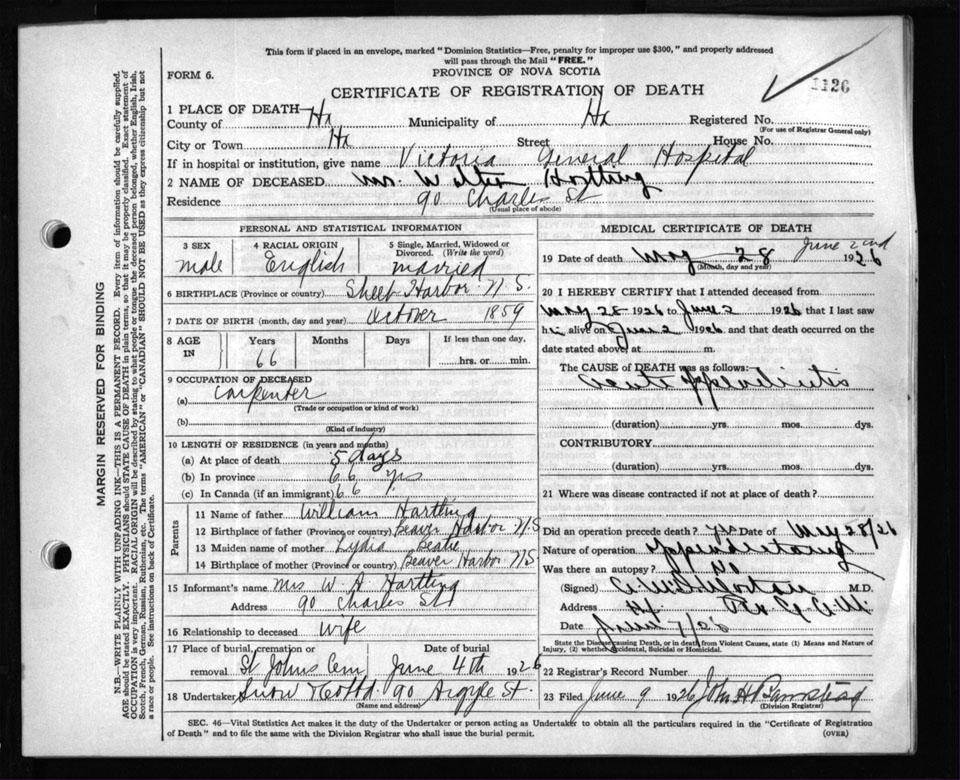 This form if placed in an envelope, marked "Dominion Statistics—Free, penalty for improper use $300," and properly addressed
will pass through the Mail "FREE."
PROVINCE OF NOVA SCOTIA
FORM 6.
CERTIFICATE OF REGISTRATION OF DEATH
1126
1 PLACE OF DEATH—
County of Hx Municipality of Hx Registered No.
(For use of Registrar General only)
City or Town Hx Street House No.
If in hospital or institution, give name Victoria General Hospital
2 NAME OF DECEASED Mr. Walter Hartling
Residence 90 Charles St
(Usual place of abode)
PERSONAL AND STATISTICAL INFORMATION
3 SEX 4 RACIAL ORIGIN 5 Single, Married, Widowed or Divorced. (Write the word)
male English married
6 BIRTHPLACE (Province or country) Sheet Harbor N.S.
7 DATE OF BIRTH (month, day and year) October 1859
8 AGE IN Years Months Days If less than one day,
66 hrs. or min.
9 OCCUPATION OF DECEASED
(a) Carpenter
(Trade or occupation or kind of work)
(b)
(Kind of industry)
10 LENGTH OF RESIDENCE (in years and months)
(a) At place of death 5 days
(b) In province 66 yrs
(c) In Canada (if an immigrant) 66
Parents
11 Name of father William Hartling
12 Birthplace of father (Province or country) Beaver Harbor N.S
13 Maiden name of mother Lydia Beatie
14 Birthplace of mother (Province or country) Beaver Harbor NS
15 Informant's name Mrs W. A Hartling
Address 90 Charles St
16 Relationship to deceased Wife
17 Place of burial, cremation or removal St Johns Cem Date of burial June 4th 1926
18 Undertaker Snow & Co Ltd. 90 Argyle St.
(Name and address)
MEDICAL CERTIFICATE OF DEATH
19 Date of death May 28 June 2nd 1926
(Month, day and year)
20 I HEREBY CERTIFY that I attended deceased from
May 28 1926 to June 2 1926 that I last saw
him alive on June 2 1926 and that death occurred on
date stated above, at m.
The CAUSE OF DEATH was as follows:
acute appendicitis
(duration) yrs. mos. dys.
CONTRIBUTORY
(duration) yrs. mos. dys.
21 Where was disease contracted if not at place of death?
Did an operation precede death? Yes Date of May 28/26
Nature of operation Appendectomy
Was there an autopsy? No
(Signed) M.D.
Address
Date June
State the Disease causing Death, or in death from Violent Causes, state (1) Means and Nature of
Injury, (2) whether Accidental, Suicidal or Homicidal.
22 Registrar's Record Number
23 Filed June 9 1926 John H Barnstead
(Division Registrar)
SEC. 46—Vital Statistics Act makes it the duty of the Undertaker or person acting as Undertaker to obtain all the particulars required in the "Certificate of Registration
of Death" and to file the same with the Division Registrar who shall issue the burial permit.
(OVER)
MARGIN RESERVED FOR BINDING
N.B.—WRITE PLAINLY WITH UNFADING INK—THIS IS A PERMANENT RECORD. Every item of information should be carefully supplied.
AGE should be stated EXACTLY. PHYSICIANS should STATE CAUSE OF DEATH in plain terms, so that it may be properly classified. Exact statement of
OCCUPATION is very important. RACIAL ORIGIN will be described by stating to what people or tongue the deceased person belonged, whether English, Irish,
Scotch, French, German, Russian, Ruthenian, etc. The terms "AMERICAN" or "CANADIAN" SHOULD NOT BE USED as they express citizenship but not
a race or people. See instructions on back of Certificate.